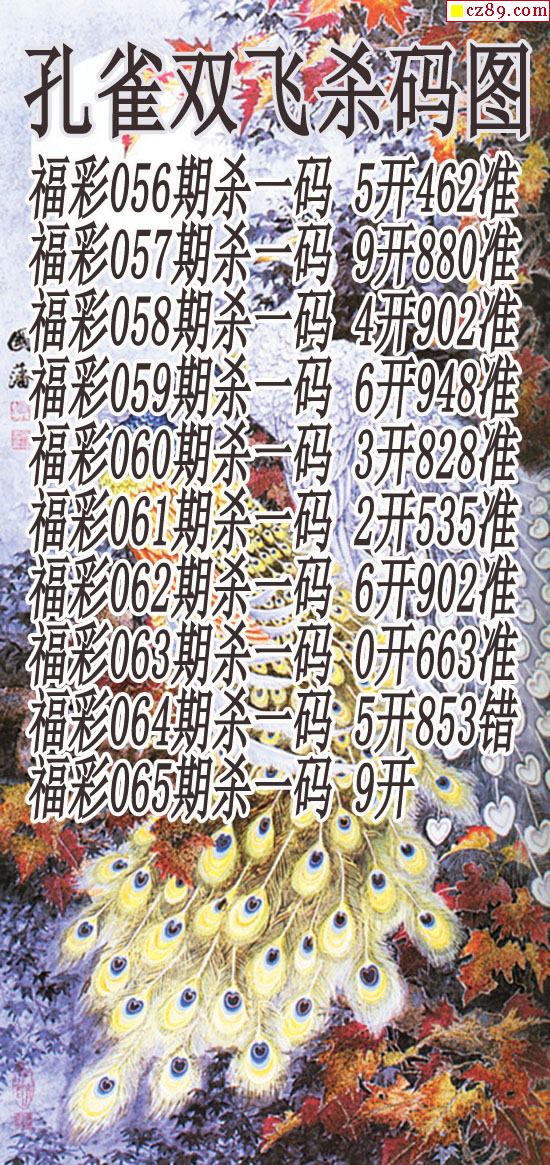 cz89.com
孔雀双飞杀码图
福彩056期杀一码 5开462准
福彩057期杀一码 9开880准
福彩058期杀一码 4开902准
福彩059期杀一码 6开948准
福彩060期杀一码 3开828准
福彩061期杀一码 2开535准
福彩062期杀一码 6开902准
福彩063期杀一码 0开663准
福彩064期杀一码 5开853错
福彩065期杀一码 9开